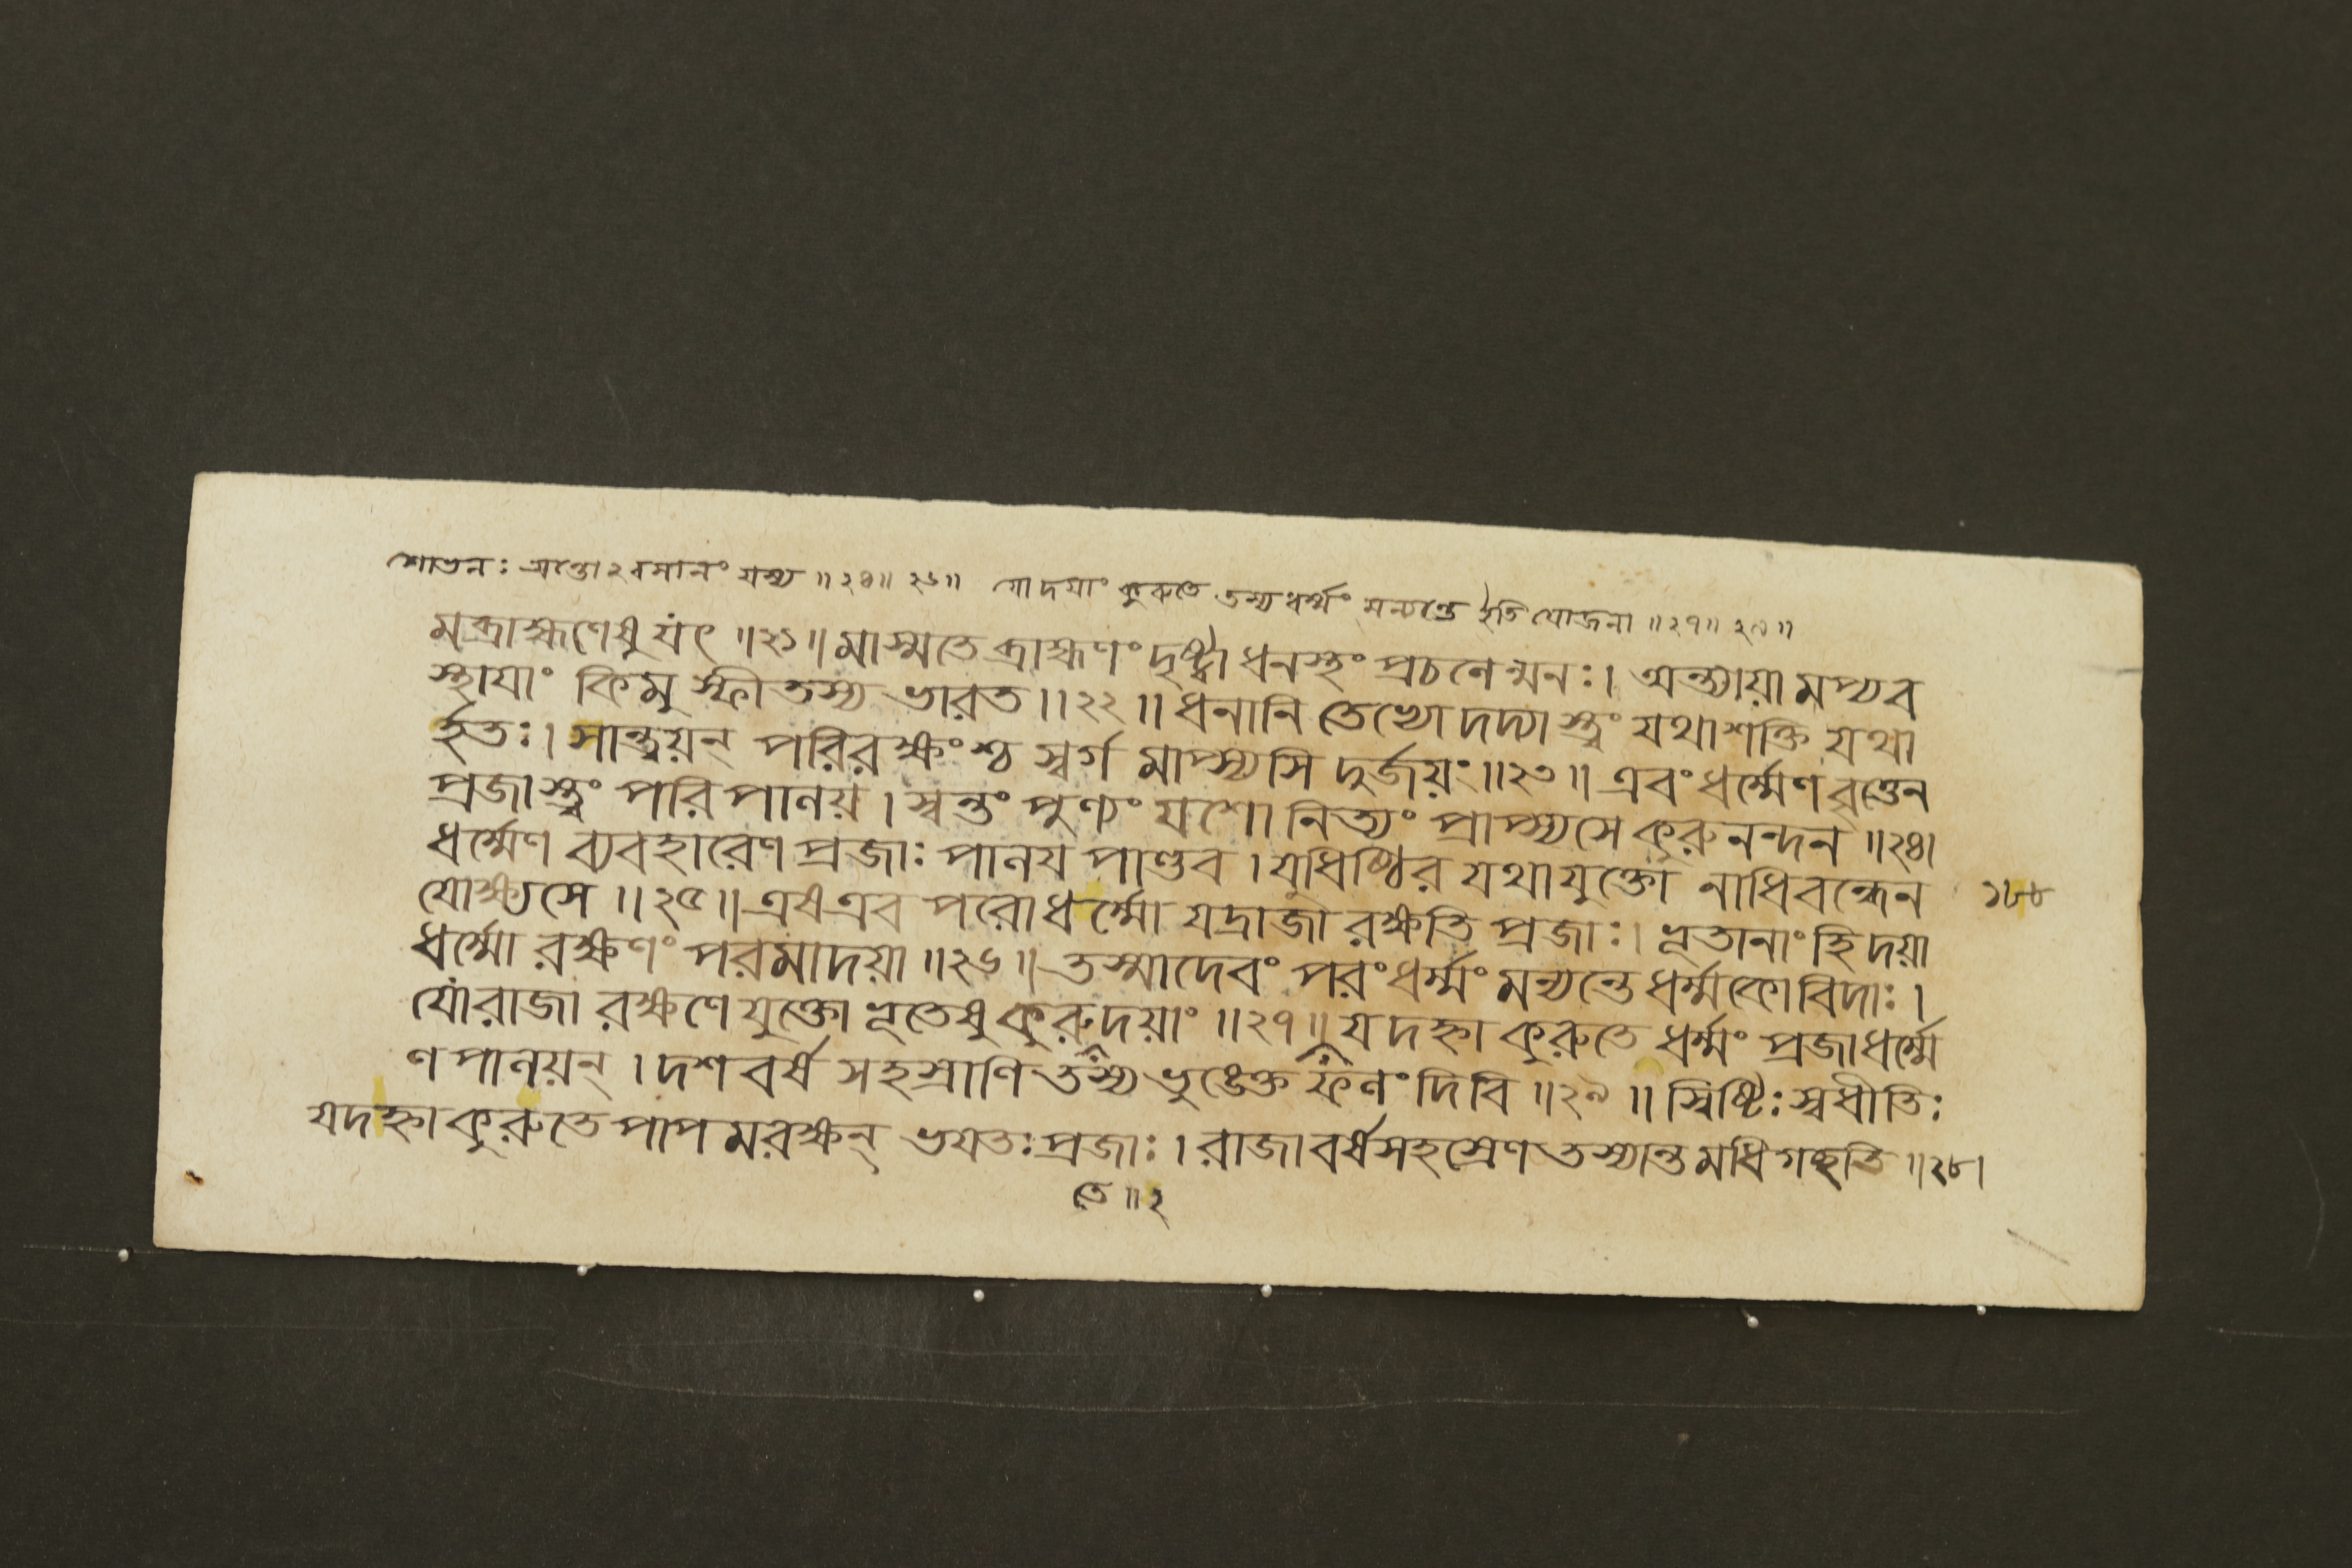 শোভনঃ অন্তোঽবসানং যস্য ॥২৪॥ ২৬॥ যো দয়াং কুরুতে তস্য ধর্ম্মং মন্যন্তে ইতি যোজনা ॥২৭॥ ২৮॥
মব্রাহ্মণেষু যৎ ॥২১॥ মাস্মতে ব্রাহ্মণং দৃষ্ট্বা ধনস্থং প্রচলেন্মনঃ। অন্ত্যায়ামপ্যব
স্থাযাং কিমু স্ফীতস্য ভারত।।২২॥ ধনানি তেভ্যো দদ্যাস্ত্বং যথাশক্তি যথা
র্হতঃ। সান্ত্বয়ন্ পরিরক্ষংশ্চ স্বর্গমাপ্স্যসি দুর্জয়ং॥২৩॥ এবং ধর্ম্মেণ বৃত্তেন
প্রজাস্ত্বং পরিপালয়। স্বন্তং পুণ্যং যশো নিত্যং প্রাপ্স্যসে কুরুনন্দন ॥২৪।
ধর্ম্মেণ ব্যবহারেণ প্রজাঃ পালয পাণ্ডব। যুধিষ্ঠির যথাযুক্তো নাধিবন্ধেন
যোক্ষ্যসে ॥২৫॥ এষ এব পরোধর্ম্মো যদ্রাজা রক্ষতি প্রজাঃ। ভূতানাং হি দয়া
১৮৮
ধর্ম্মো রক্ষণং পরমাদয়া ॥২৬॥ তস্মাদেবং পরংধর্ম্মং মন্যন্তে ধর্ম্মকোবিদাঃ।
যোরাজা রক্ষণে যুক্তো ভূতেষু কুরুদয়াং ॥২৭॥ যদহ্না কুরুতে ধর্ম্মং প্রজাধর্ম্মে
ণ পালয়ন্। দশবর্ষ সহস্রাণি তস্য ভুঙেক্ত ফলং দিবি ॥২৯॥ স্বিষ্টিঃ স্বধীতিঃ
যদহ্না কুরুতে পাপমরক্ষন্ ভযতঃ প্রজাঃ। রাজা বর্ষসহস্রেণ তস্যান্তমধিগচ্ছতি ॥২৮।
তে॥২